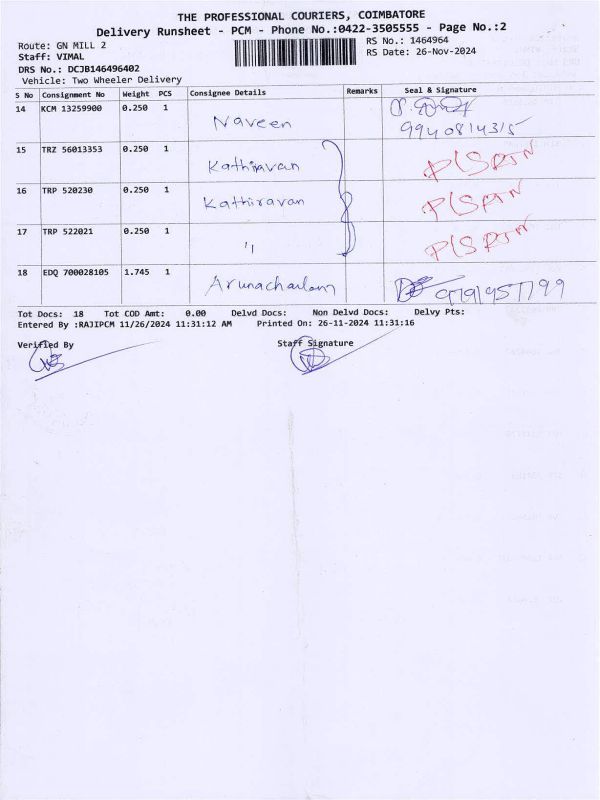 THE PROFESSIONAL COURIERS, COIMBATORE
Delivery Runsheet - PCM - Phone No.:0422-3505555 - Page No.:2
Route: GN MILL 2
RS No.: 1464964
Staff: VIMAL
RS Date: 26-Nov-2024
DRS No.: DCJB146496402
Vehicle: Two Wheeler Delivery
S No Consignment No Weight PCS Consignee Details Remarks Seal & Signature
14 KCM 13259900 0.250 1
Naveen
9940814315
15 TRZ 56013353 0.250 1
Kathiravan
16 TRP 520230 0.250 1
Kathiravan
17 TRP 522021 0.250 1
"
18 EDQ 700028105 1.745 1
Arunachalam
9791957799
Tot Docs: 18 Tot COD Amt: 0.00 Delvd Docs: Non Delvd Docs: Delvy Pts:
Entered By :RAJIPCM 11/26/2024 11:31:12 AM Printed On: 26-11-2024 11:31:16
Verified By Staff Signature